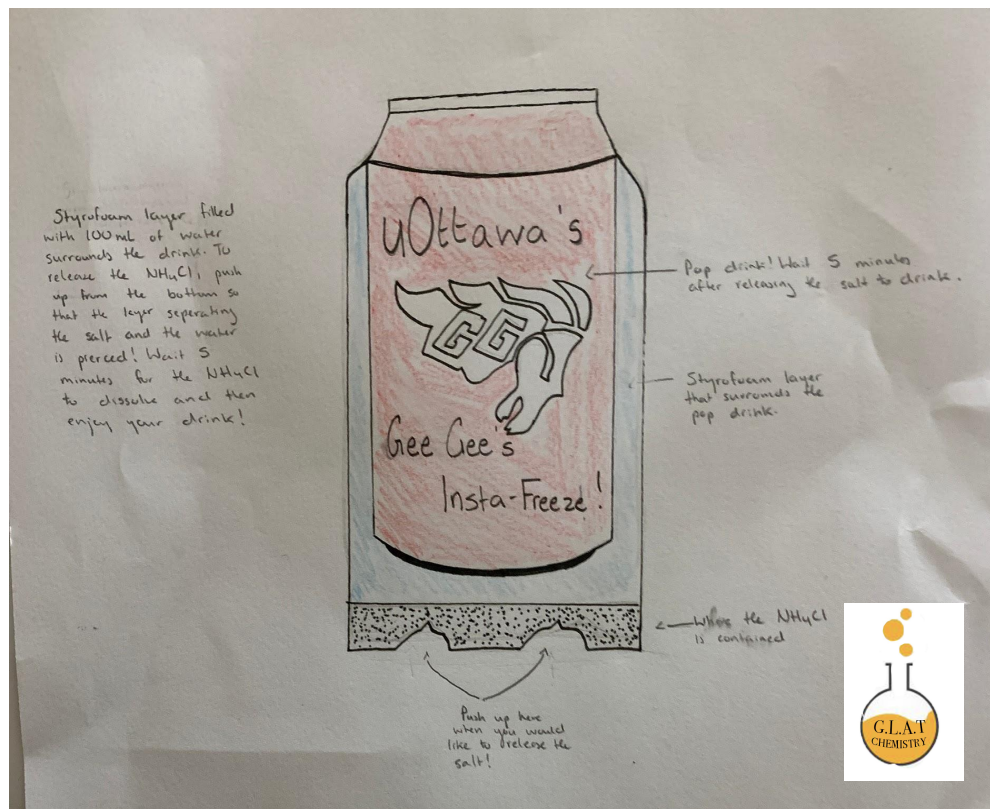 Styrofoam layer filled
with 100mL of water
surrounds the drink. To
release the NH4Cl, push
up from the bottom so
that the layer seperating
the salt and the water
is pierced! Wait 5
minutes for the NH4Cl
to dissolve and then
enjoy your drink!
uOttawa's
GG
Gee Gee's
Insta-Freeze!
Pop drink! Wait 5 minutes
after releasing the salt to drink.
Styrofoam layer
that surrounds the
pop drink.
Where the NH4Cl
is contained
Push up here
when you would
like to release the
salt!
G.L.A.T
CHEMISTRY